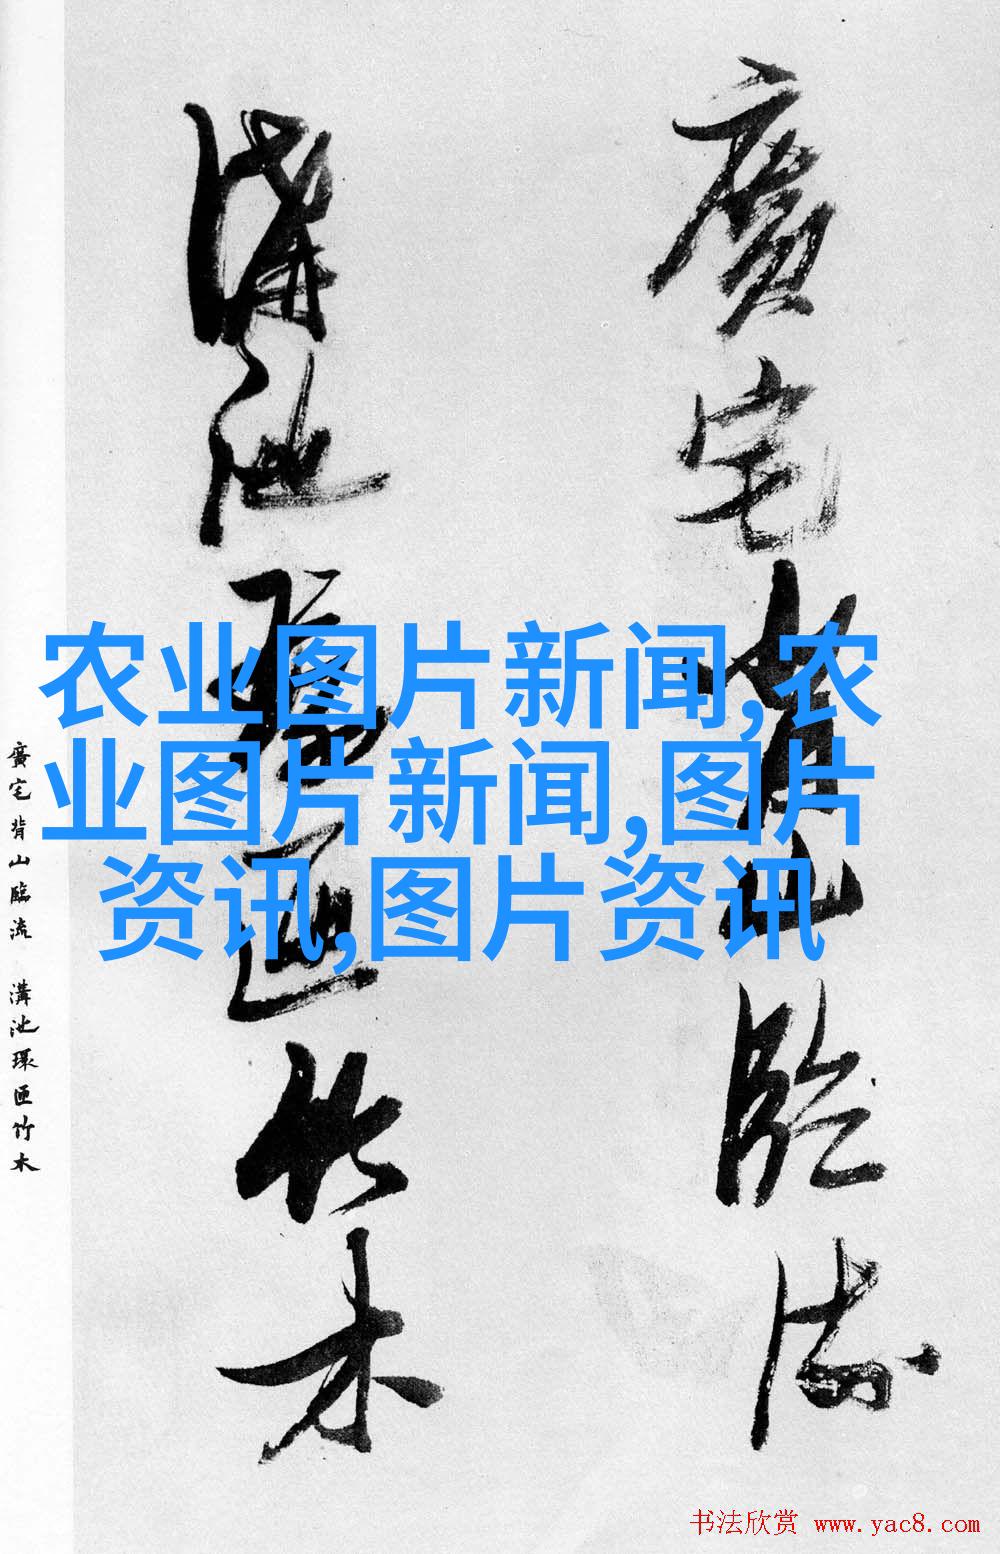 廣宅背山臨流
溝池環匝竹木
农业图片新闻,农
业图片新闻,图片
资讯,图片资讯
廣宅背山臨流 溝池環匝竹木
书法欣赏 www.yac8.com